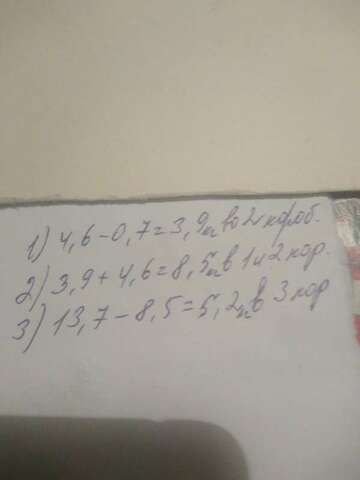 1) 4,6-0,7=3,9л во 2 короб.
2) 3,9+4,6=8,5л в 1 и 2 кор.
3) 13,7-8,5=5,2л в 3 кор